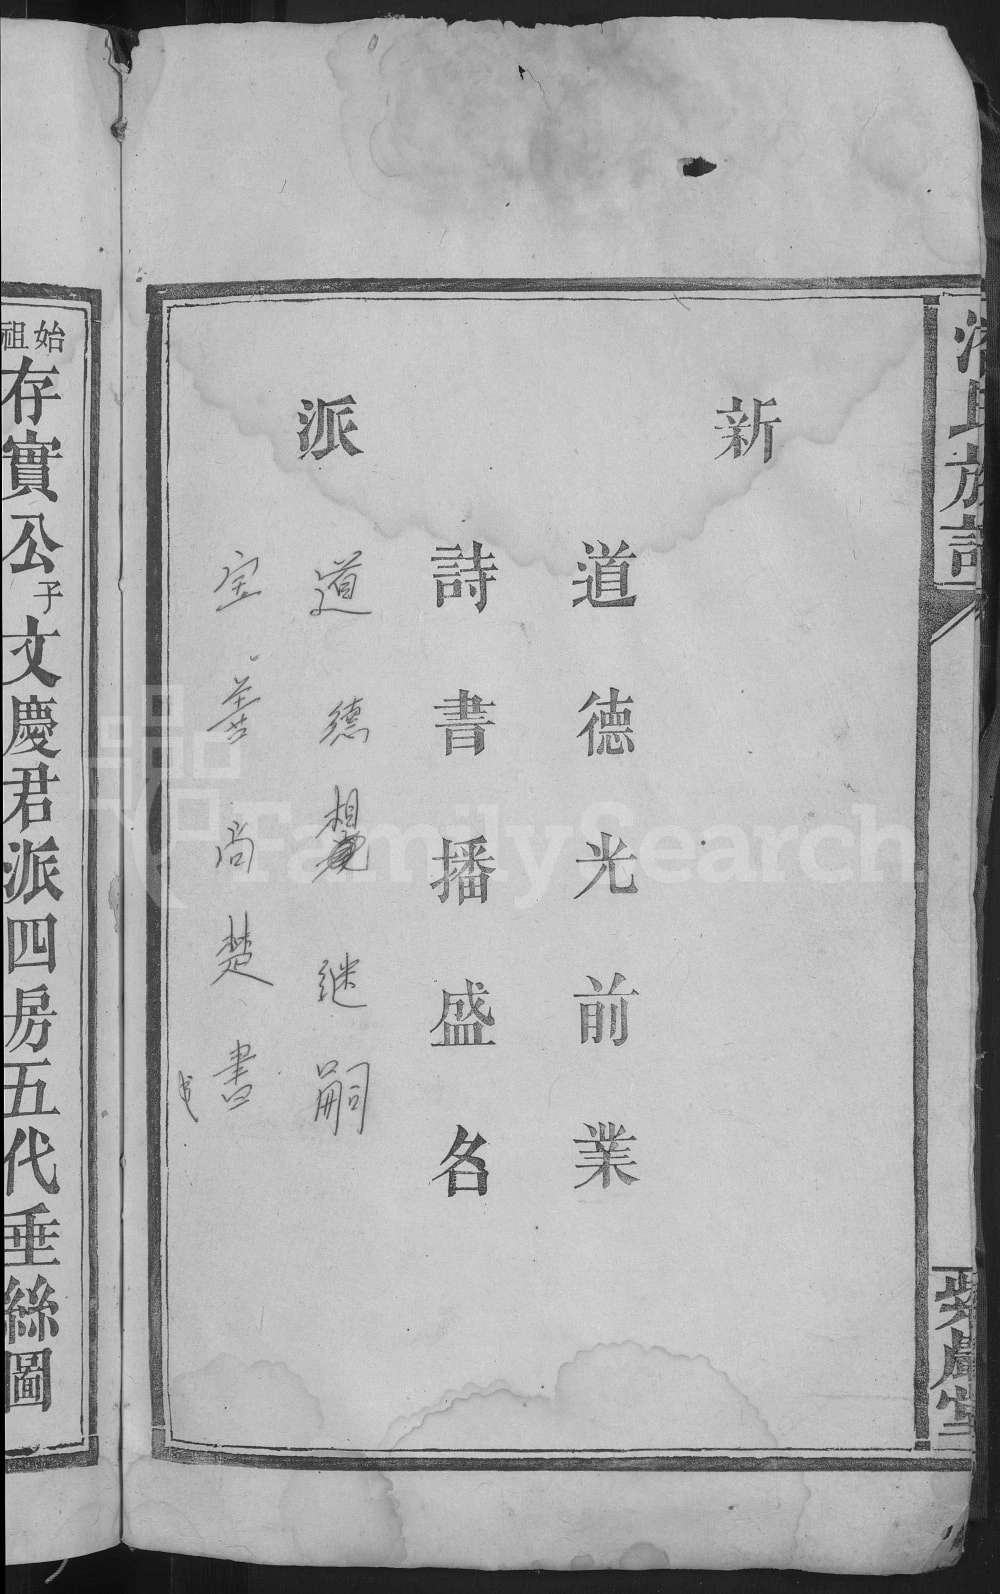 氏族譜
紫巖堂
新
道德光前業
詩書播盛名
派
道德覺想继嗣
宝善尚楚書
始祖存實公子文慶君派四房五代垂絲圖
FamilySearch